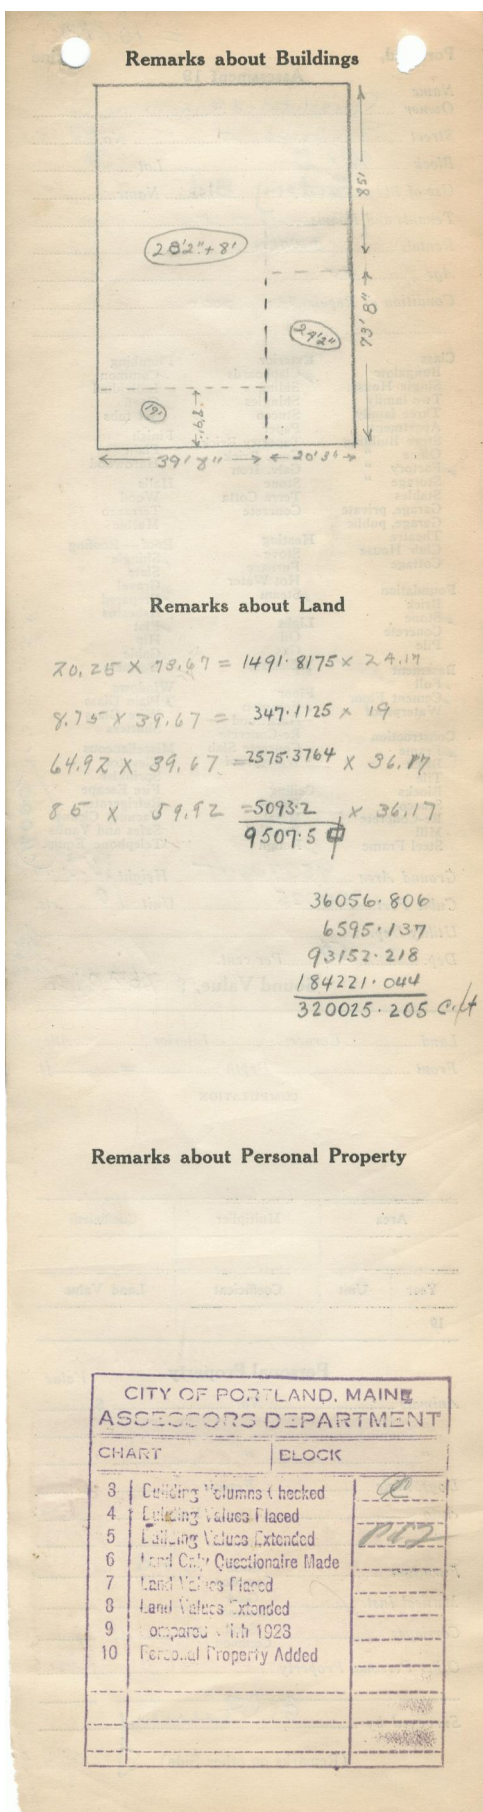 Remarks about Buildings
28'2" + 8'
85'
24'2"
73' 8"
19'
8'9"
39' 8"
20' 3"
Remarks about Land
20.25 X 73.67 = 1491.8175 x 24.17
8.75 X 39.67 = 347.1125 x 19
64.92 X 39.67 = 2575.3764 x 36.17
85 x 59.92 = 5093.2 x 36.17
9507.5
36056.806
6595.137
93152.218
184221.044
320025.205 c.ft
Remarks about Personal Property
CITY OF PORTLAND, MAINE
ASSESSORS DEPARTMENT
CHART BLOCK
3 Building Volumns Checked
4 Building Values Placed
5 Building Values Extended
6 Land Only Questionaire Made
7 Land Values Placed
8 Land Values Extended
9 Compared With 1923
10 Personal Property Added